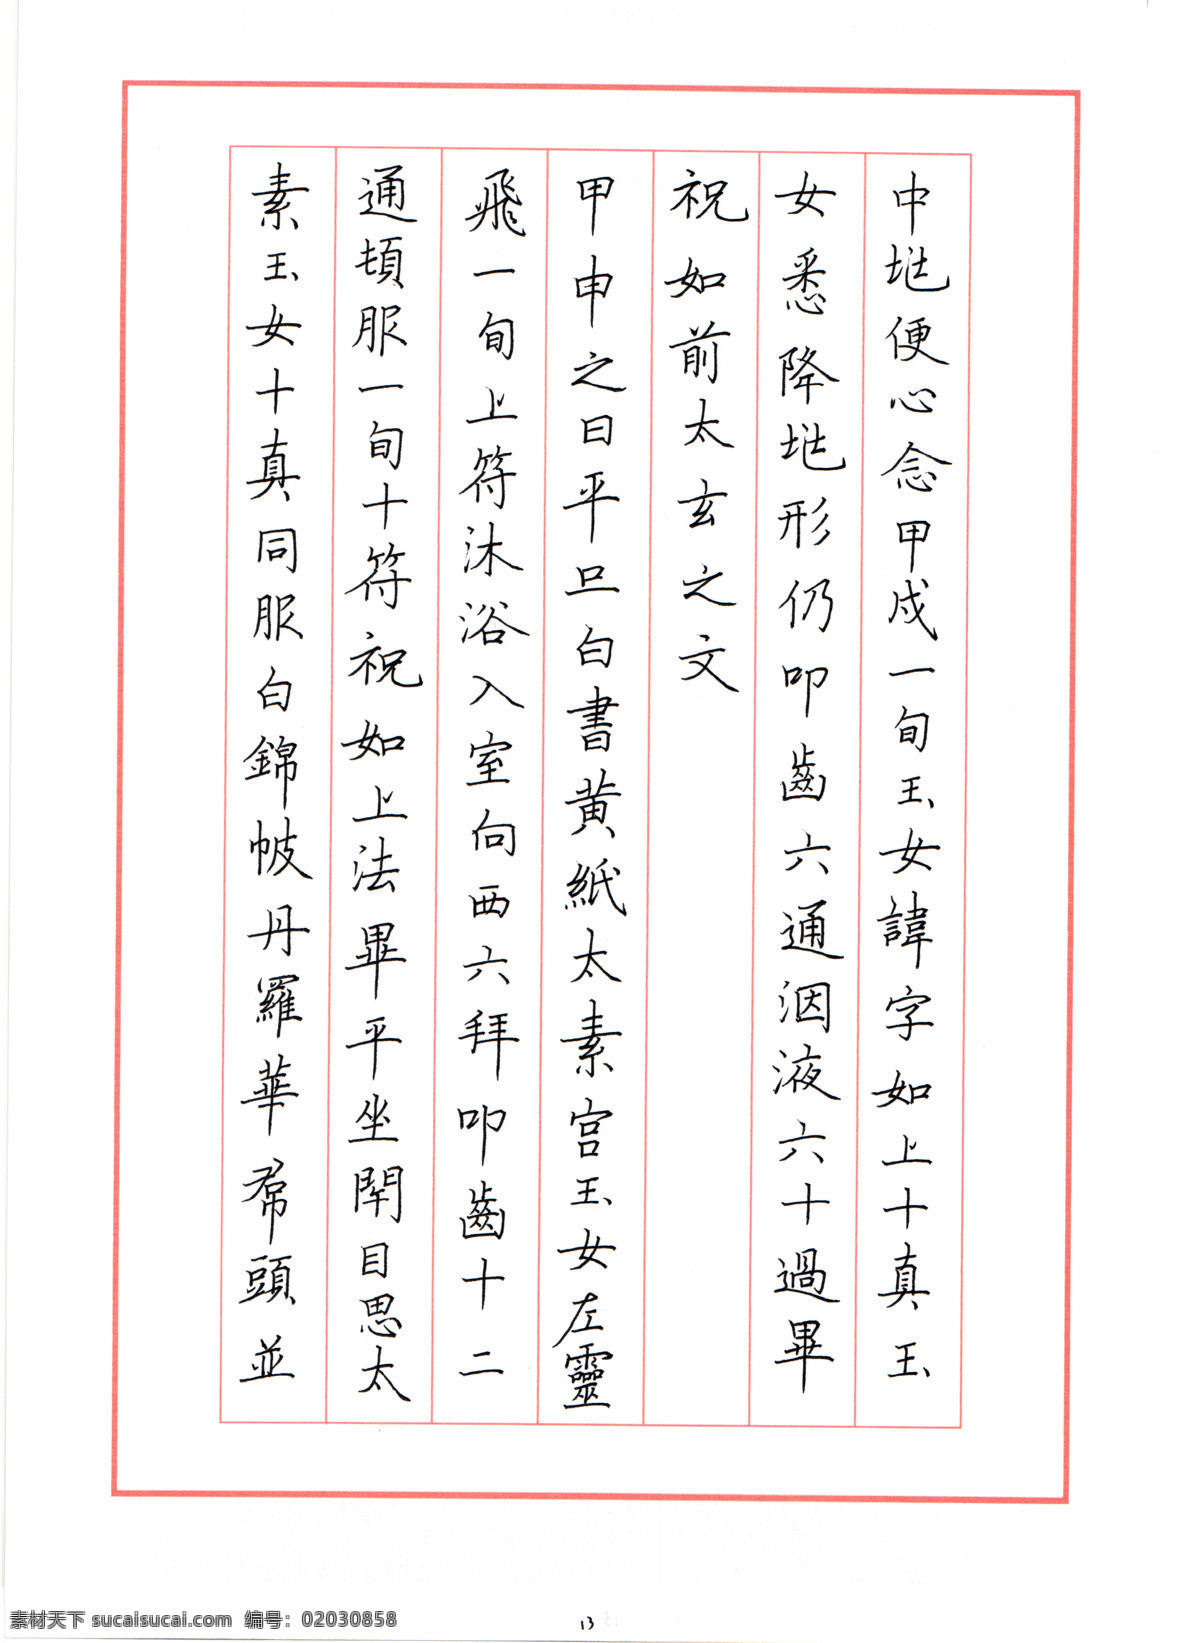 中地便心念甲戌一旬玉女諱字如上十真玉
女悉降地形仍叩齒六通洇液六十過畢
祝如前太玄之文
甲申之日平旦白書黃紙太素宮玉女左靈
飛一旬上符沐浴入室向西六拜叩齒十二
通頓服一旬十符祝如上法畢平坐閇目思太
素玉女十真同服白錦帔丹羅華帬頭並
13
素材天下 sucaisucai.com 编号：02030858